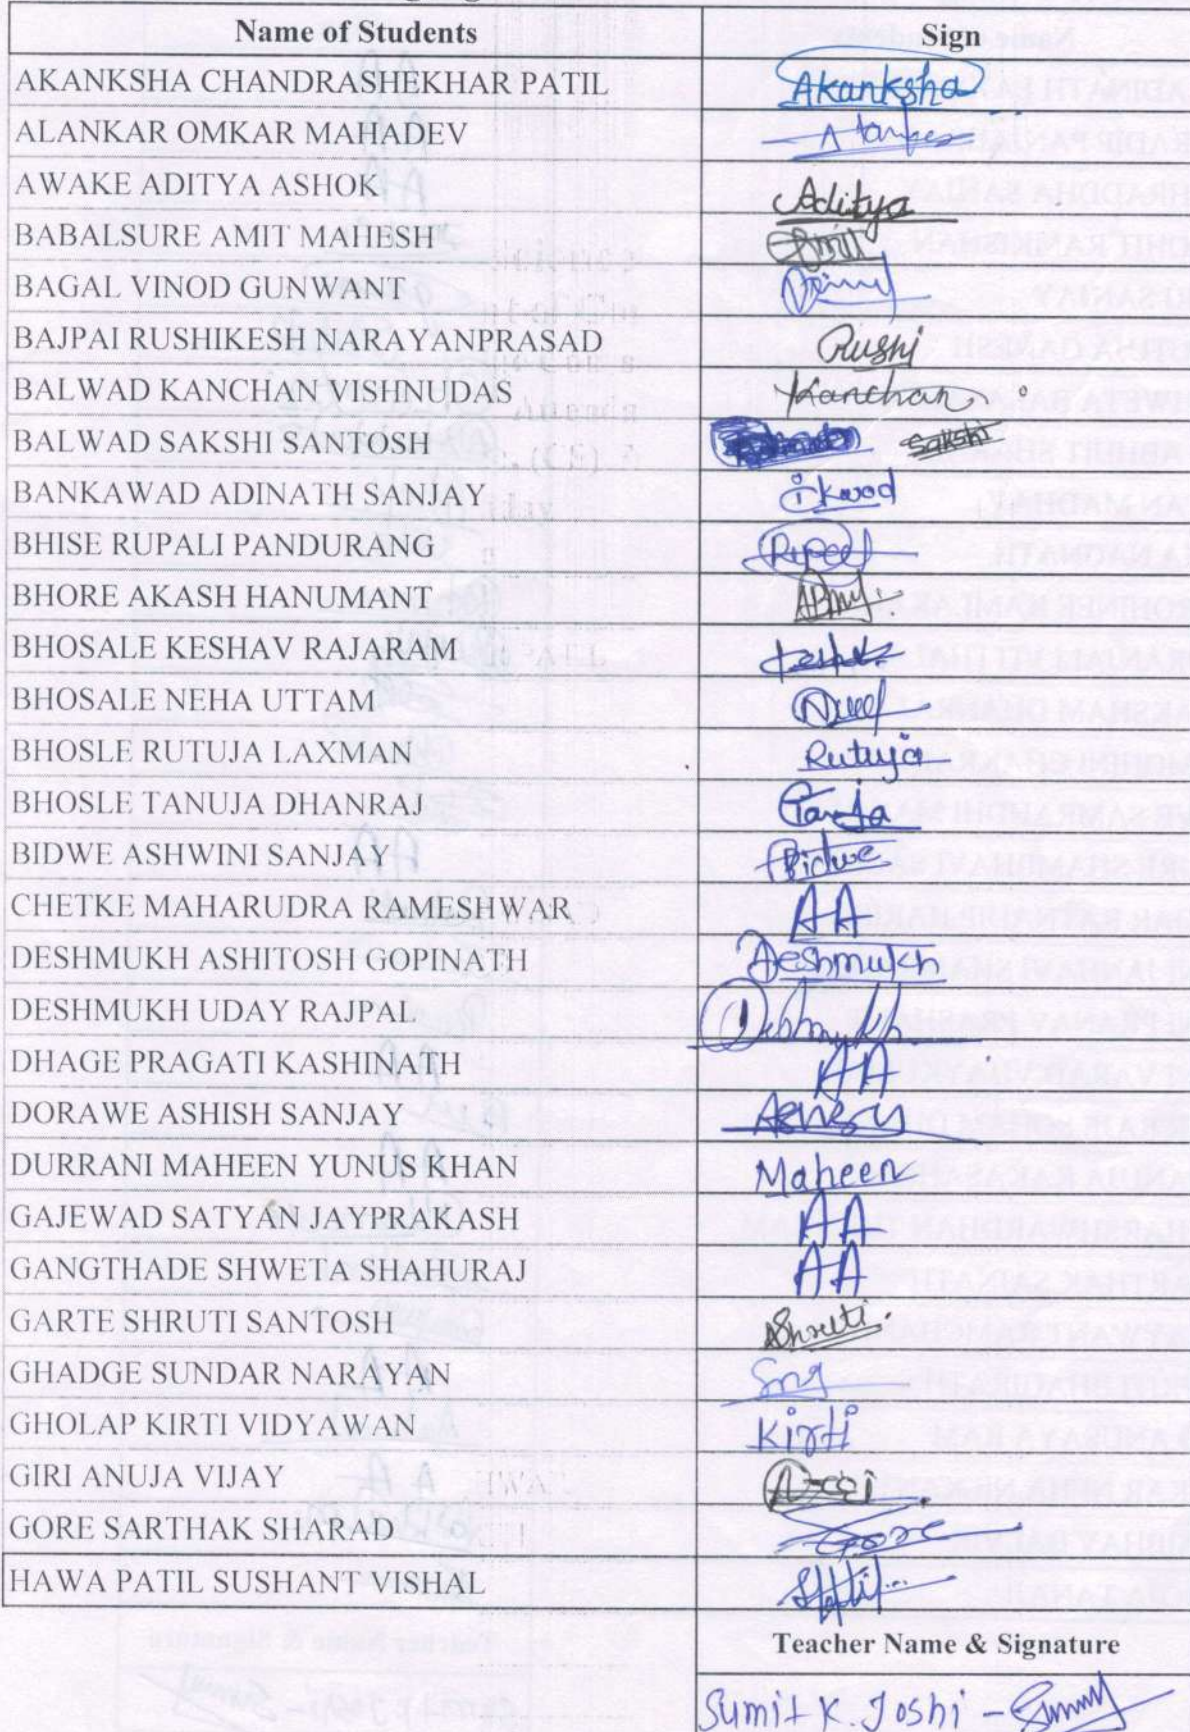 Name of Students Sign
AKANKSHA CHANDRASHEKHAR PATIL Akanksha
ALANKAR OMKAR MAHADEV
AWAKE ADITYA ASHOK Aditya
BABALSURE AMIT MAHESH
BAGAL VINOD GUNWANT
BAJPAI RUSHIKESH NARAYANPRASAD Rushi
BALWAD KANCHAN VISHNUDAS Kanchan
BALWAD SAKSHI SANTOSH Sakshi
BANKAWAD ADINATH SANJAY
BHISE RUPALI PANDURANG
BHORE AKASH HANUMANT
BHOSALE KESHAV RAJARAM
BHOSALE NEHA UTTAM
BHOSLE RUTUJA LAXMAN Rutuja
BHOSLE TANUJA DHANRAJ
BIDWE ASHWINI SANJAY Bidwe
CHETKE MAHARUDRA RAMESHWAR AA
DESHMUKH ASHITOSH GOPINATH Deshmukh
DESHMUKH UDAY RAJPAL Deshmukh
DHAGE PRAGATI KASHINATH AA
DORAWE ASHISH SANJAY
DURRANI MAHEEN YUNUS KHAN Maheen
GAJEWAD SATYAN JAYPRAKASH AA
GANGTHADE SHWETA SHAHURAJ AA
GARTE SHRUTI SANTOSH Shruti
GHADGE SUNDAR NARAYAN
GHOLAP KIRTI VIDYAWAN Kirti
GIRI ANUJA VIJAY
GORE SARTHAK SHARAD Gore
HAWA PATIL SUSHANT VISHAL
Teacher Name & Signature
Sumit K. Joshi -